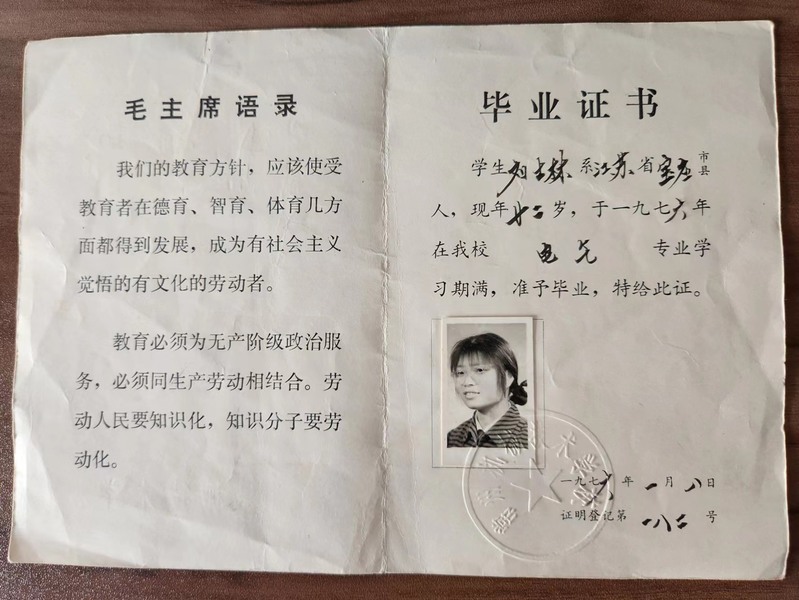 毛主席语录
我们的教育方针，应该使受
教育者在德育、智育、体育几方
面都得到发展，成为有社会主义
觉悟的有文化的劳动者。
教育必须为无产阶级政治服
务，必须同生产劳动相结合。劳
动人民要知识化，知识分子要劳
动化。
毕业证书
学生 系江苏省宝应市县
人，现年廿二岁，于一九七六年
在我校 电气 专业学
习期满，准予毕业，特给此证。
一九七六年一月八日
证明登记第一八二号